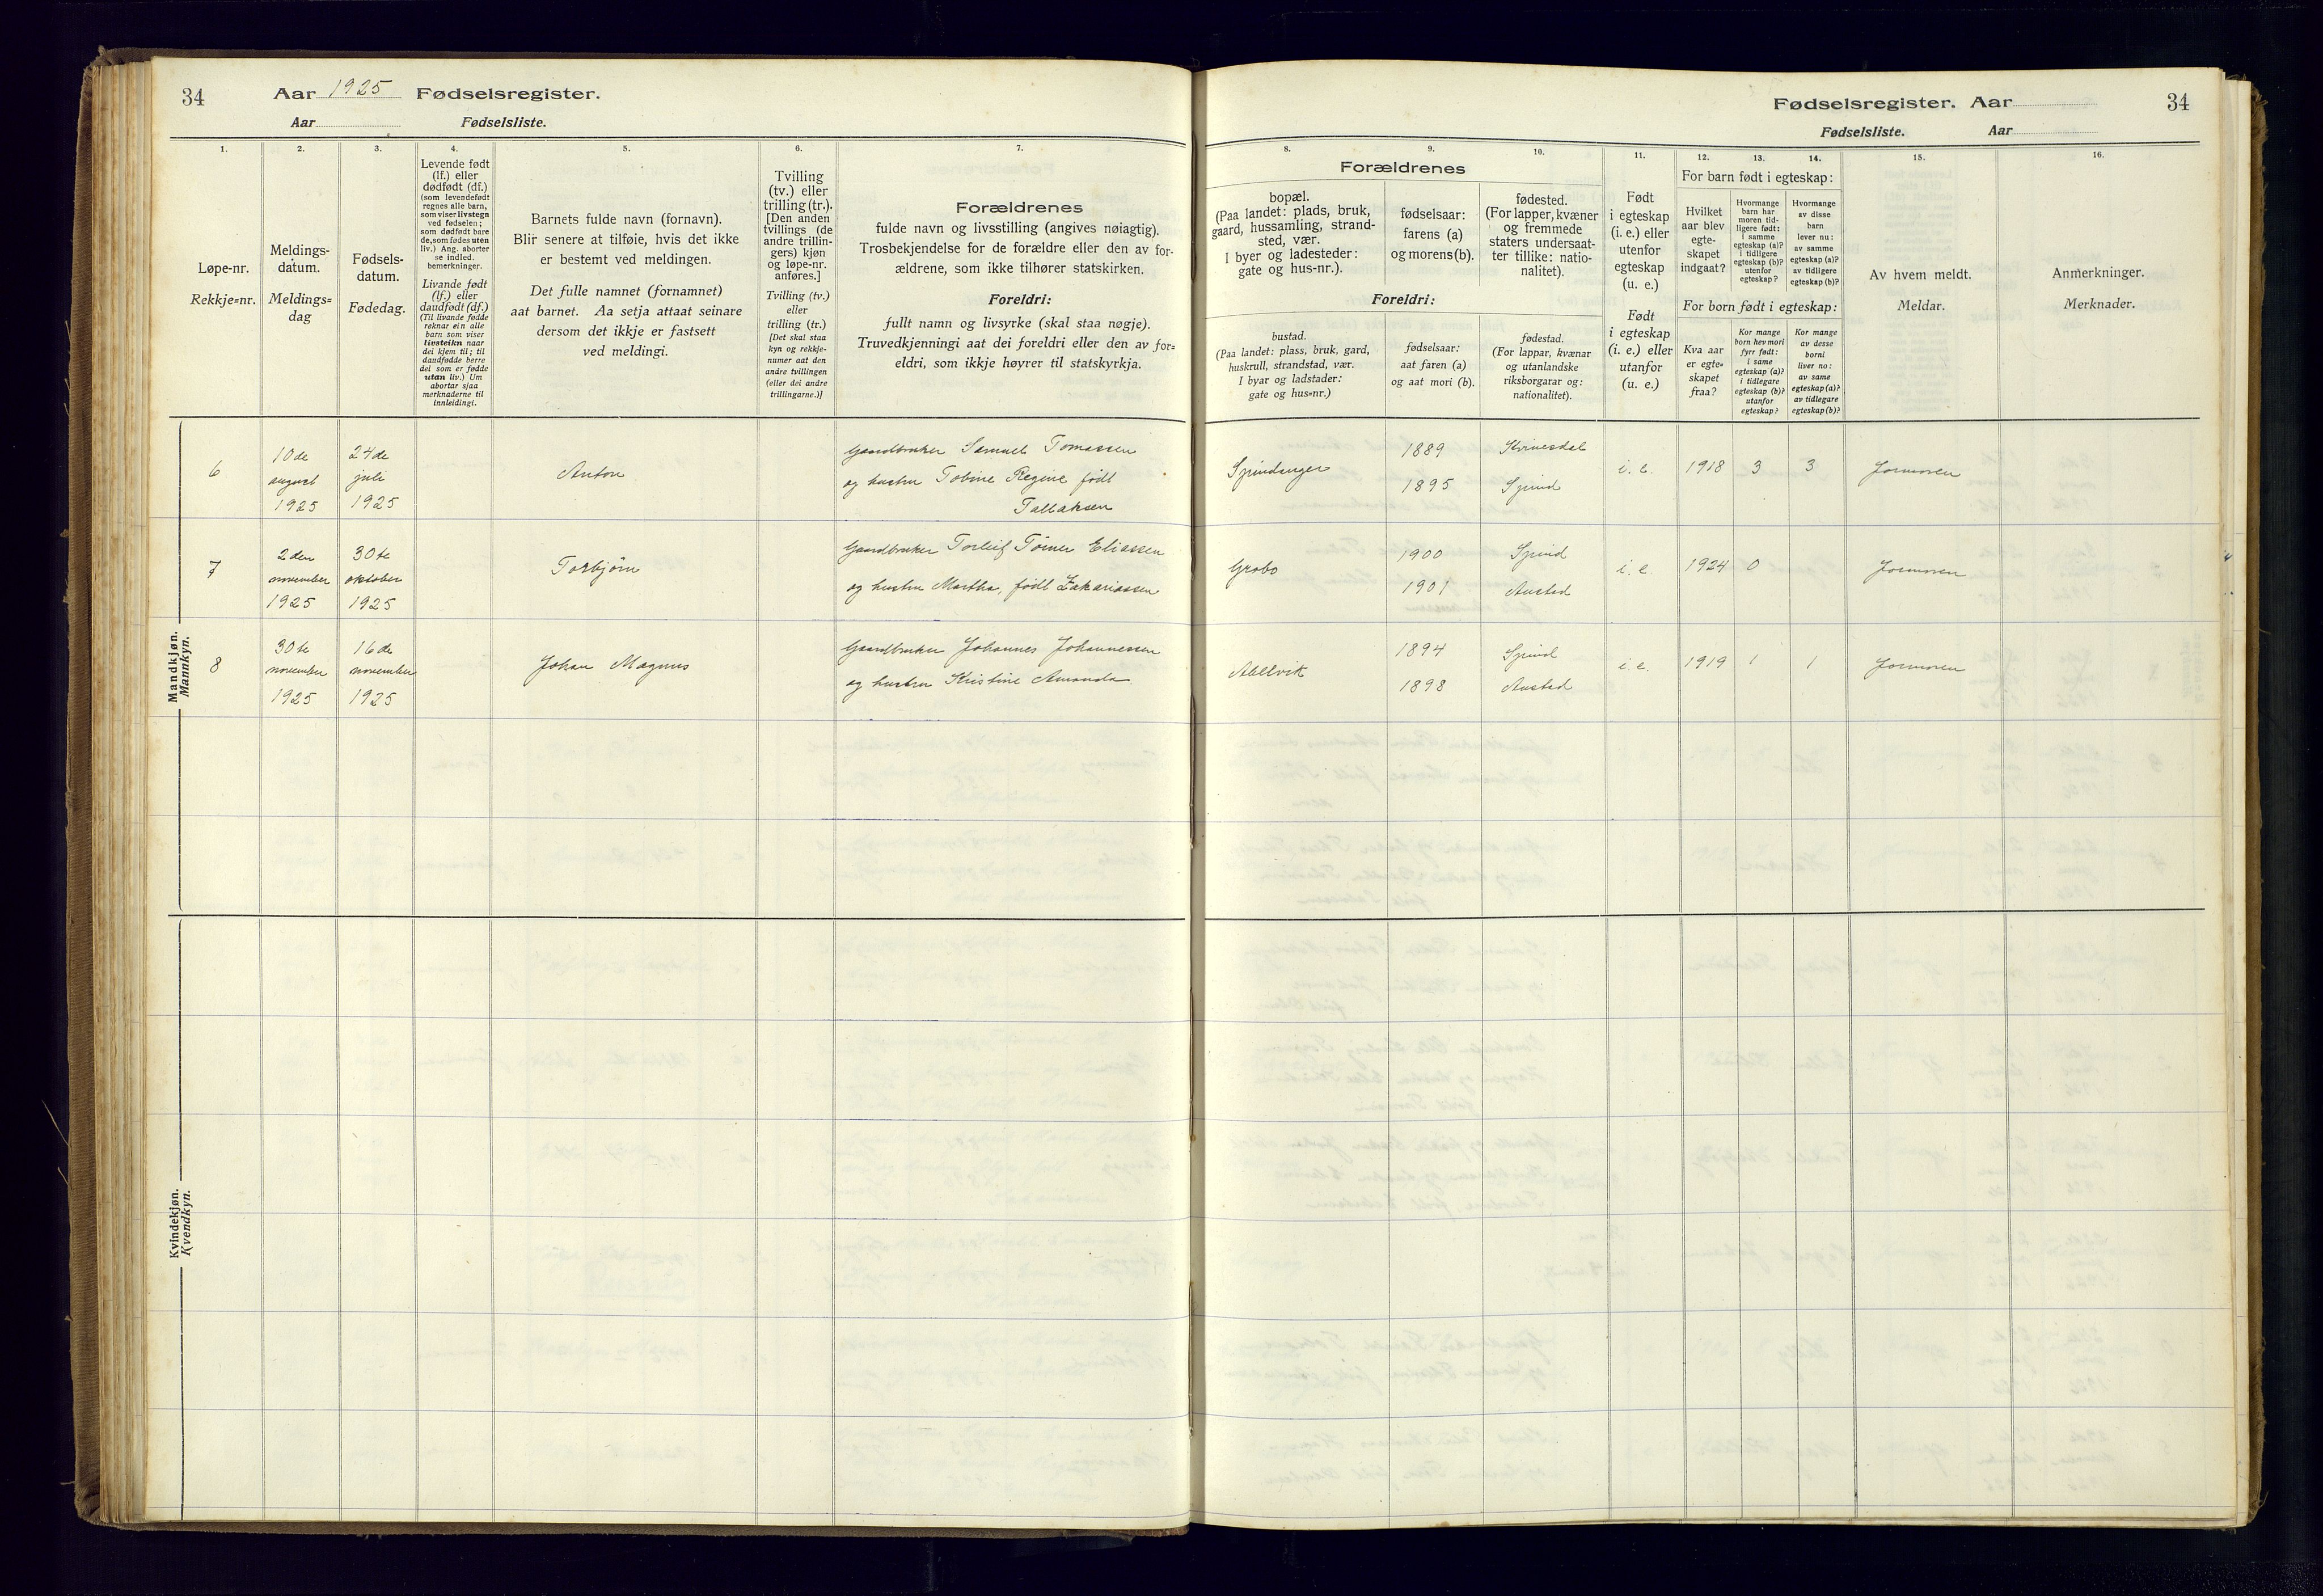 34
Aar 1925 Fødselsregister.
Aar Fødselsliste.
1.
2.
3.
4.
5.
6.
7.
Løpe-nr.
Rekkje=nr.
Meldings-
datum.
Meldings=
dag
Fødsels-
datum.
Fødedag.
Levende født
(lf.) eller
dødfødt (df.)
(som levendefødt
regnes alle barn,
som viser livstegn
ved fødselen;
som dødfødt bare
de, som fødes uten
liv.) Ang. aborter
se indled.
bemerkninger.
Livande født
(lf.) eller
daudfødt (df.)
(Til livande fødde
reknar ein alle
barn som viser
livsteikn naar
dei kjem til; til
daudfødde berre
dei som er fødde
utan liv.) Um
abortar sjaa
merknaderne til
innleidingi.
Barnets fulde navn (fornavn).
Blir senere at tilføie, hvis det ikke
er bestemt ved meldingen.
Det fulle namnet (fornamnet)
aat barnet. Aa setja attaat seinare
dersom det ikkje er fastsett
ved meldingi.
Tvilling
(tv.) eller
trilling (tr.).
[Den anden
tvillings (de
andre trillin-
gers) kjøn
og løpe-nr.
anføres.]
Tvilling (tv.)
eller
trilling (tr.)
[Det skal staa
kyn og rekkje-
numer aat den
andre tvillingen
(eller dei andre
trillingarne.)]
Forældrenes
fulde navn og livsstilling (angives nøiagtig).
Trosbekjendelse for de forældre eller den av for-
ældrene, som ikke tilhører statskirken.
Foreldri:
fullt namn og livsyrke (skal staa nøgje).
Truvedkjenningi aat dei foreldri eller den av for=
eldri, som ikkje høyrer til statskyrkja.
Mandkjøn.
Mannkyn.
6
10de
august
1925
24de
juli
1925
Anton
Gaardbruker Samuel Tomassen
og hustru Tobine Regine født
Tallaksen
7
2den
november
1925
30te
oktober
1925
Torbjørn
Gaardbruker Torleif Tømer Eliassen
og hustru Martha, født Zakariassen
8
30te
november
1925
16de
november
1925
Johan Magnus
Gaardbruker Johannes Johannessen
og hustru Kristine Amanda
Kvindekjøn.
Kvendkyn.
Fødselsregister. Aar
34
Fødselsliste. Aar
8.
9.
10.
11.
12.
13.
14.
15.
16.
Forældrenes
bopæl.
(Paa landet: plads, bruk,
gaard, hussamling, strand-
sted, vær.
I byer og ladesteder:
gate og hus-nr.).
fødselsaar:
farens (a)
og morens (b).
fødested.
(For lapper, kvæner
og fremmede
staters undersaat-
ter tillike: natio-
nalitet).
Foreldri:
bustad.
(Paa landet: plass, bruk, gard,
huskrull, strandstad, vær.
I byar og ladstader:
gate og hus=nr.)
fødselsaar:
aat faren (a)
og aat mori (b).
fødestad.
(For lappar, kvænar
og utanlandske
riksborgarar og:
nationalitet).
Født
i egteskap
(i. e.) eller
utenfor
egteskap
(u. e.)
Født
i egteskap
(i. e.) eller
utanfor
(u. e.)
For barn født i egteskap:
Hvilket
aar blev
egte-
skapet
indgaat?
Hvormange
barn har
moren tid-
ligere født:
i samme
egteskap (a)?
i tidligere
egteskap (b)?
utenfor
egteskap?
Hvormange
av disse
barn
lever nu:
av samme
egteskap (a)?
av tidligere
egteskap (b)?
For born født i egteskap:
Kva aar
er egte=
skapet
fraa?
Kor mange
born hev mori
fyrr født:
i same
egteskap (a)?
i tidlegare
egteskap (b)?
utanfor
egteskap?
Kor mange
av desse
borni
liver no:
av same
egteskap (a)?
av tidlegare
egteskap (b)?
Av hvem meldt.
Meldar.
Anmerkninger.
Merknader.
Spindanger
1889
1895
Kvinesdal
Spind
i. e.
1918
3
3
Jormoren
Grobo
1900
1901
Spind
Austad
i. e.
1924
0
Jormoren
Abelvik
1894
1898
Spind
Austad
i e.
1919
1
1
Jormoren